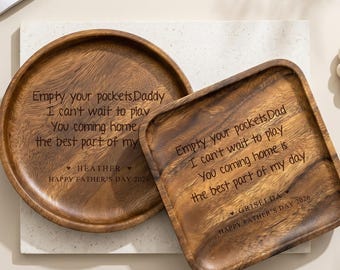 Empty your pockets,Daddy
I can't wait to play
You coming home
the best part of my
♥ HEATHER ♥
HAPPY FATHER'S DAY 2026
Empty your pockets,Dad
I can't wait to play
You coming home is
the best part of my day
♥ GRISELDA ♥
HAPPY FATHER'S DAY 2026